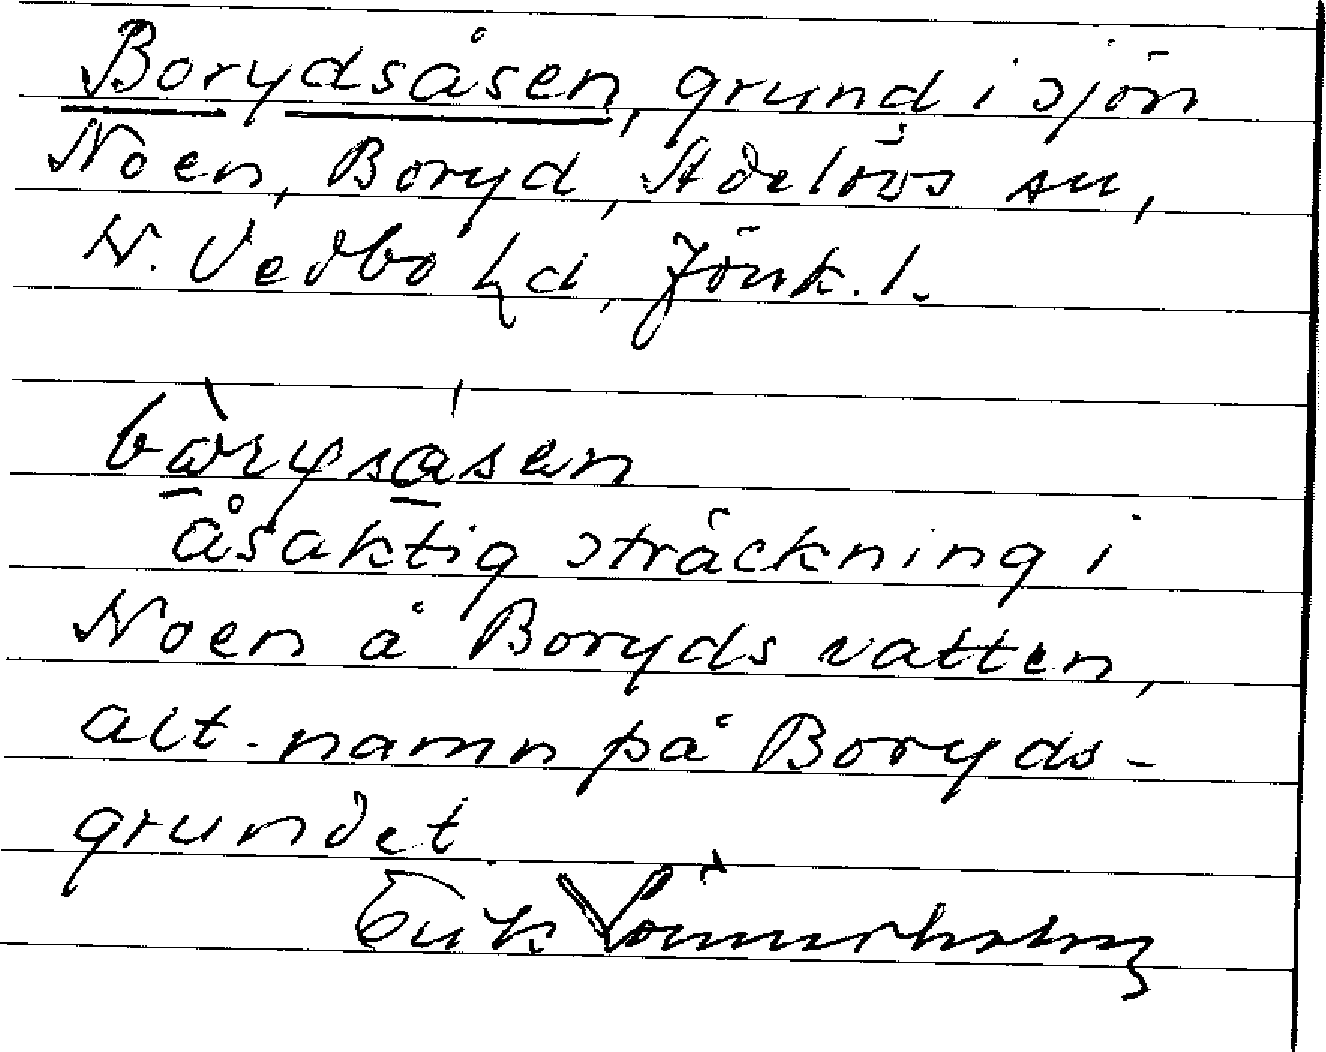 Borydsåsen, grund i sjön
Noen, Boryd, Adelövs sn,
N. Vedbo hd, Jönk. l.
bòrysåsen
åsaktig sträckning i
Noen å Boryds vatten,
alt. namn på Boryds-
grundet.
Erik Lönnerholm